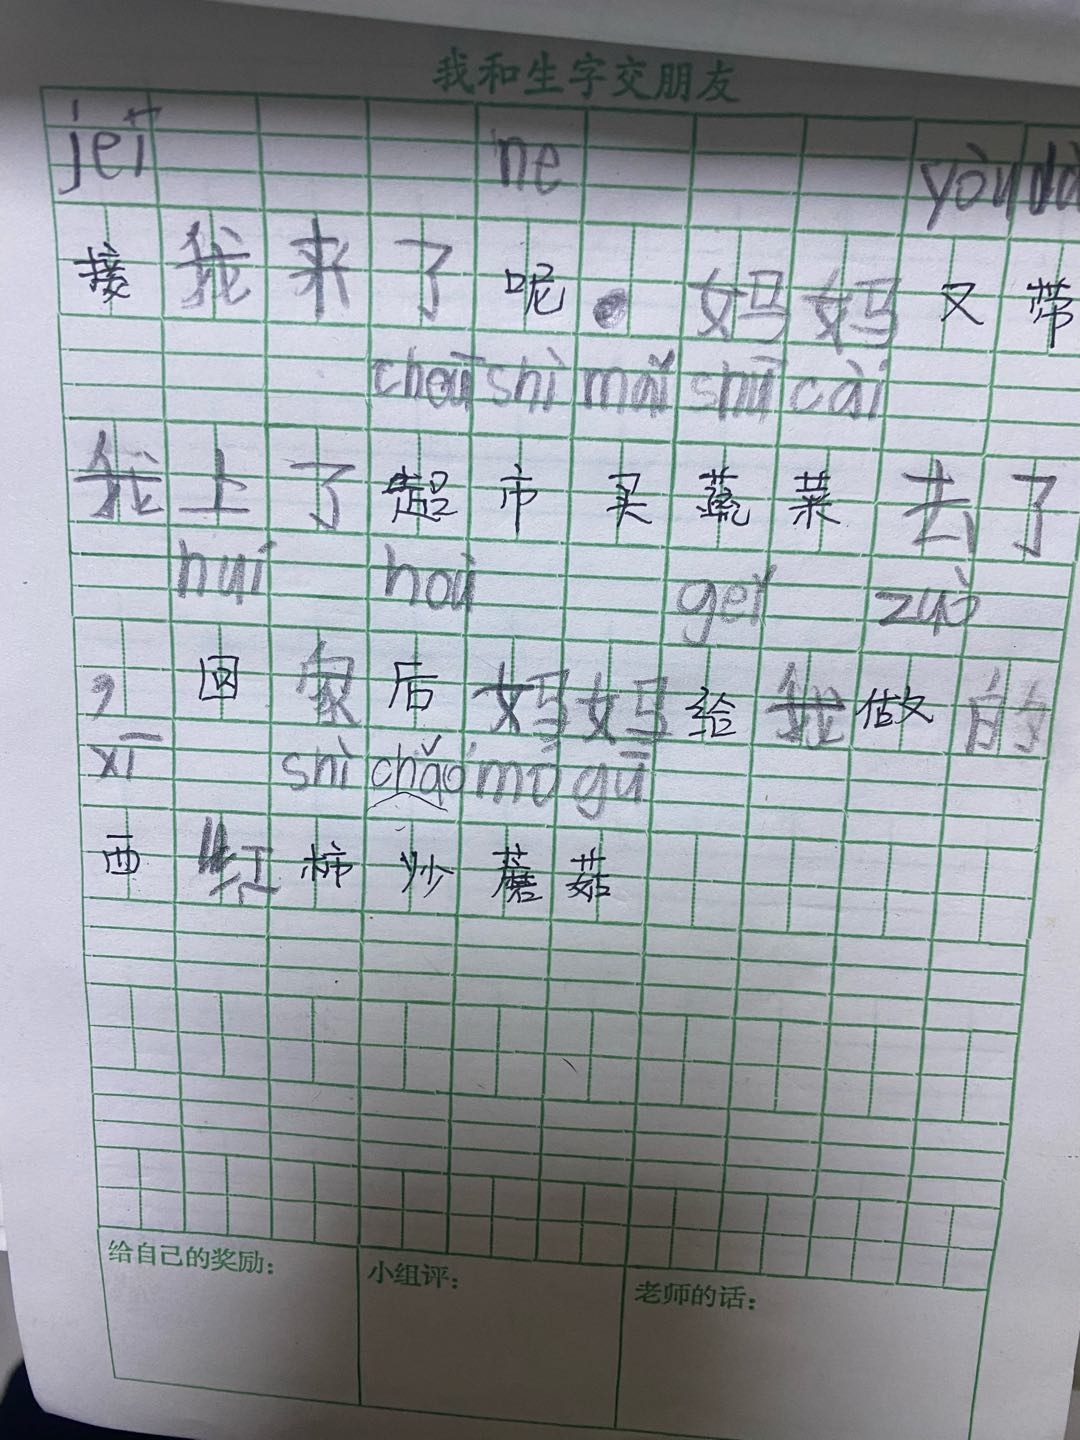 我和生字交朋友
jēi ne yòu dà
接我来了呢。妈妈又带
choū shì mǎi shū cài
我上了超市买蔬菜去了
huí hoù geǐ zuò
，回家后妈妈给我做的
xī shì chǎo mó gū
西红柿炒蘑菇
给自己的奖励：
小组评：
老师的话：